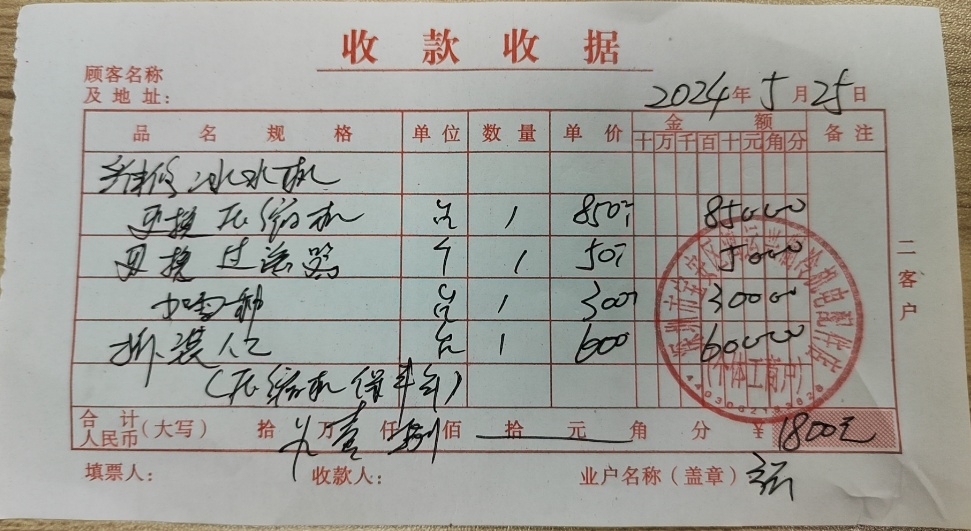 收款收据
顾客名称
及地址:
2024年5月25日
品名规格 单位 数量 单价 金额 备注
十万千百十元角分
维修冰水机
更换压缩机 台 1 850元 85000
更换过滤器 个 1 50元 5000
加雪种 台 1 300 30000
拆装人工 台 1 600 60000
(压缩机保半年)
合计
人民币(大写) 拾万壹仟捌佰拾元角分 ¥1800元
填票人: 收款人: 业户名称(盖章)
二客户
(个体工商户)